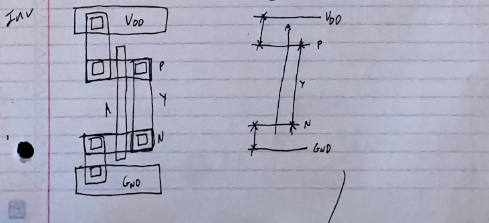 INV
VDD
P
A
Y
N
GND
VDD
P
Y
N
GND